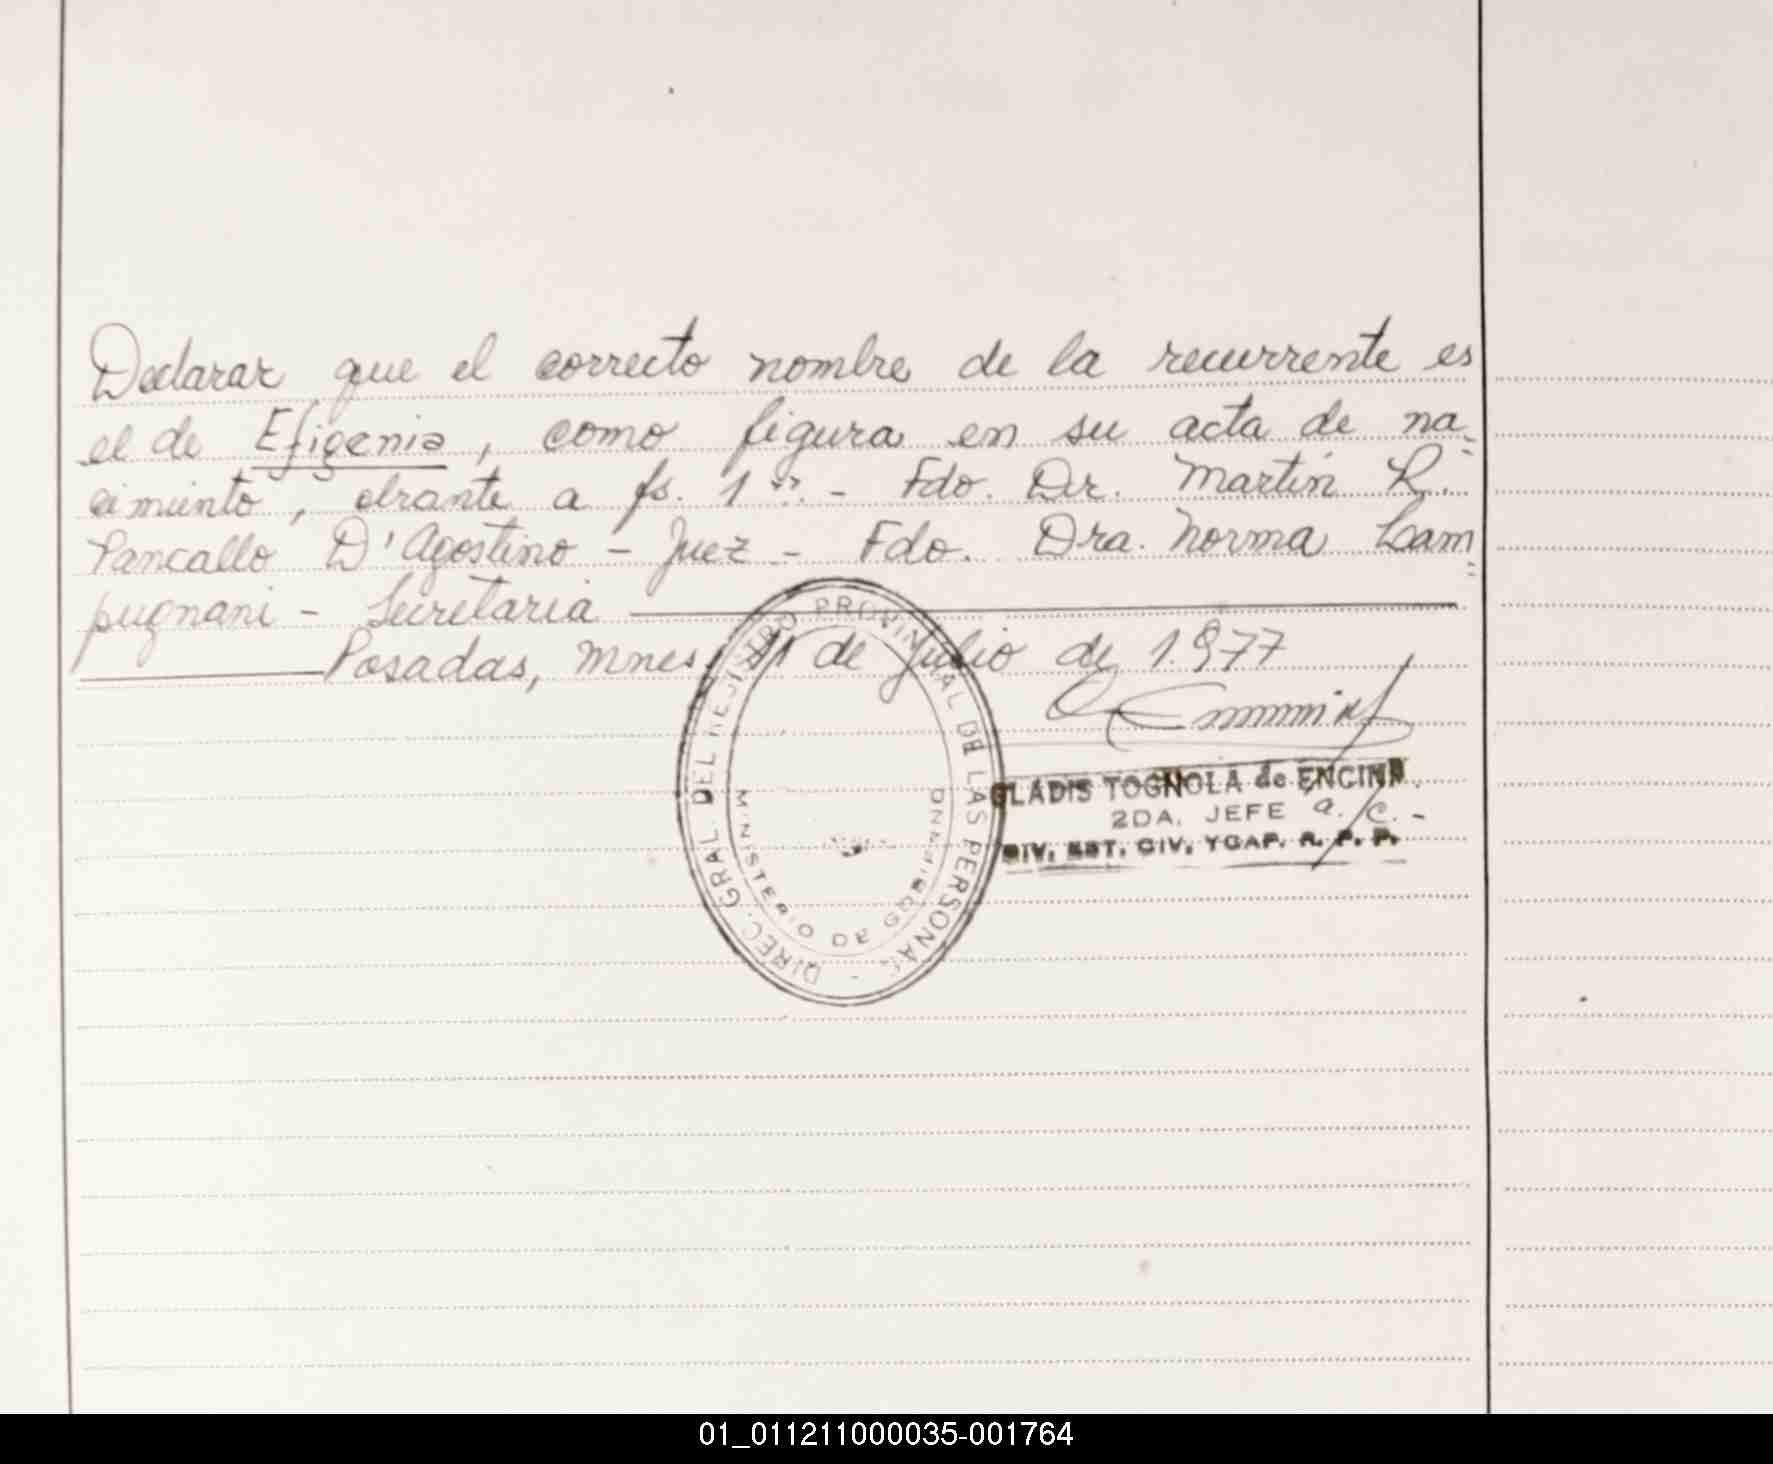 Declarar que el correcto nombre de la recurrente es
el de Efigenia, como figura en su acta de na-
cimiento, obrante a fs. 1".- Fdo. Dr. Martín R.
Pancallo D'Agostino - Juez - Fdo. Dra. Norma Lam
pugnani - Secretaria
Posadas, Mnes, 11 de Julio de 1.977
DIREC. GRAL. DEL REJISTRO PROVINCIAL DE LAS PERSONAS -
MINISTERIO DE GOBIERNO
GLADIS TOGNOLA de ENCINA
2DA. JEFE a/c.-
DIV. EST. CIV. YCAP. R. P. P.
01_011211000035-001764